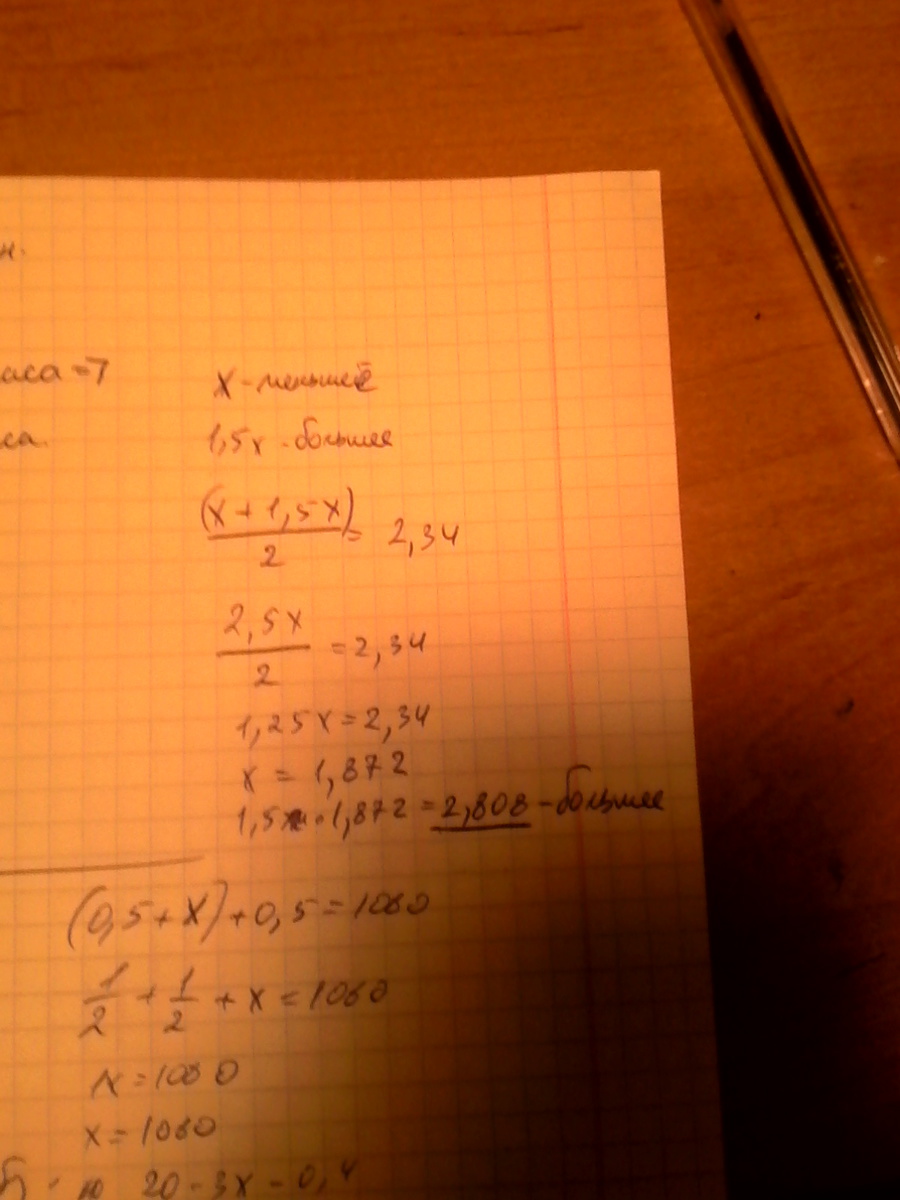 н.
аса = 7
са.
x - меньшее
1,5x - большее
(x + 1,5x)
2
= 2,34
2,5x
2
= 2,34
1,25x = 2,34
x = 1,872
1,5 · 1,872 = 2,808 - большее
(0,5 + x) + 0,5 = 1060
1/2 + 1/2 + x = 1060
x = 1060
x = 1060
20 - 3x - 0,4